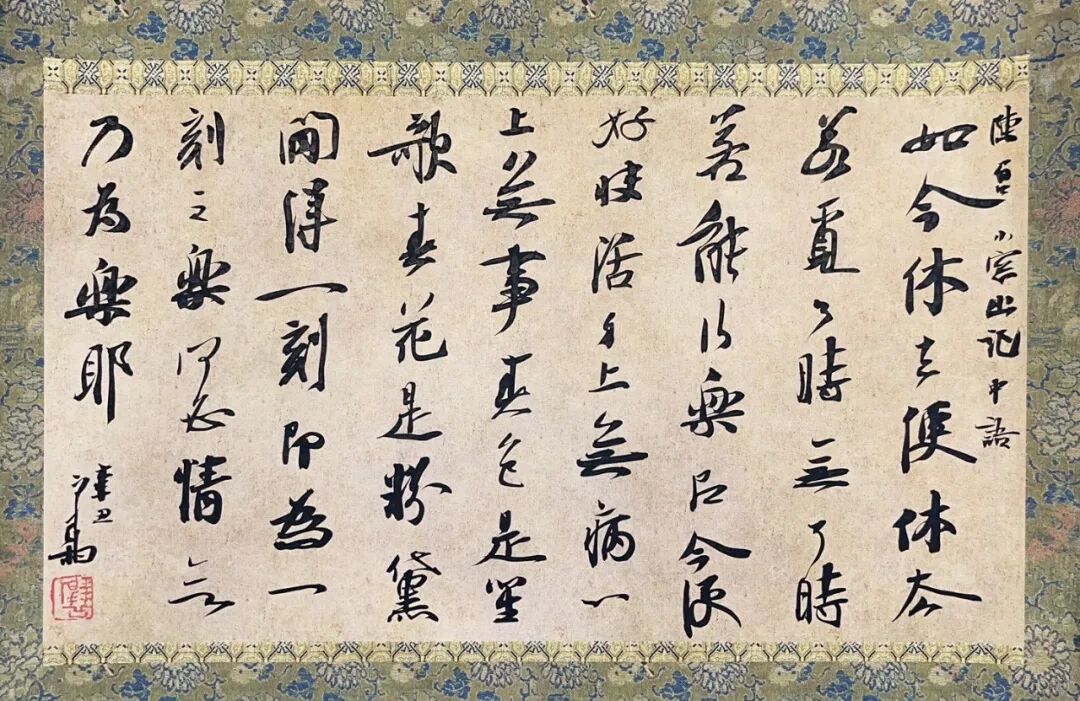 小窗幽記中語
如今休去便休去
若覓了時無了時
若能行樂即今便
好快活身上無病心
上無事春色是笙
歌春花是粉黛
閒得一刻即為一
刻之樂何必情
乃為樂耶
辛丑